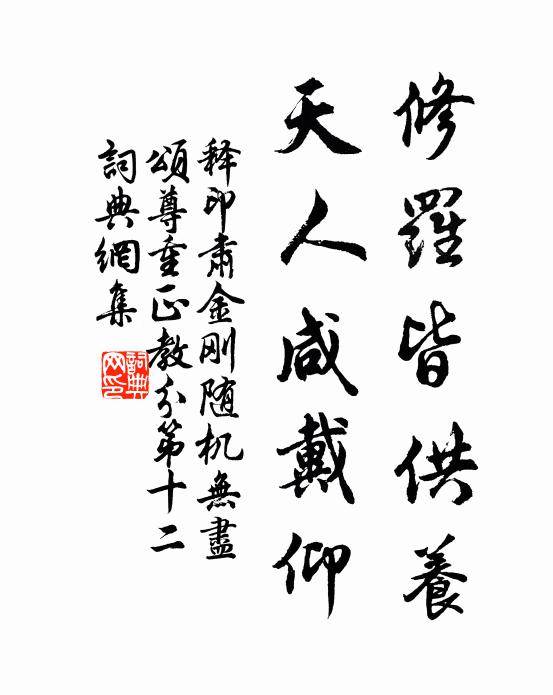 修羅皆供養
天人咸戴仰
释印肃金刚随机無盡
頌尊重正教分第十二
詞典網集
詞典網印